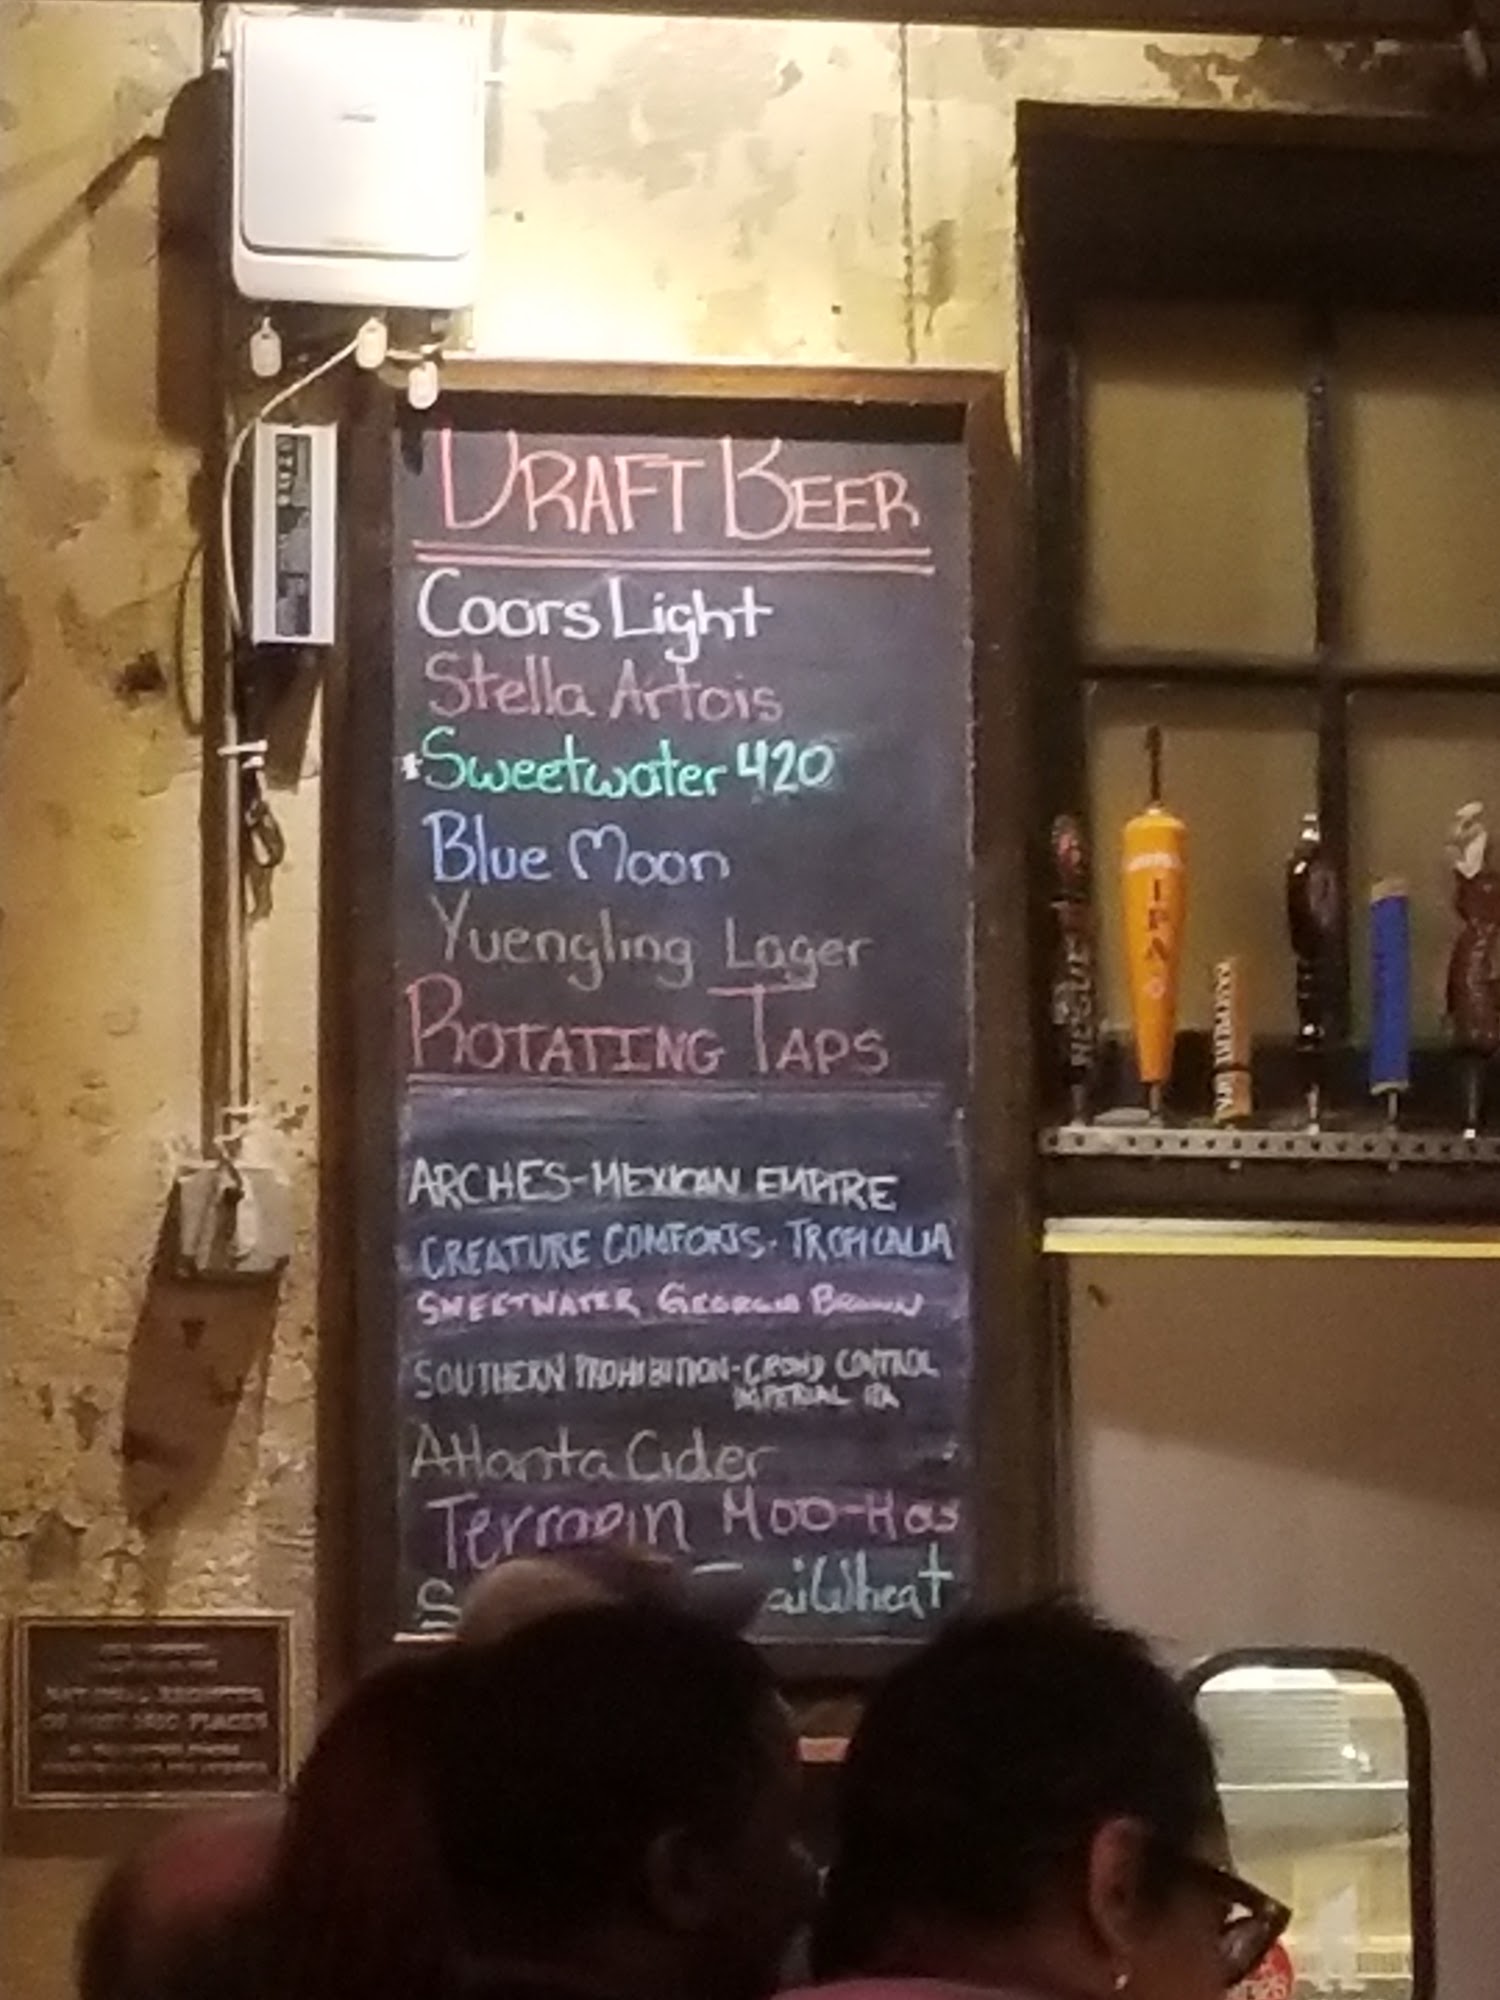 DRAFT BEER
Coors Light
Stella Artois
*Sweetwater 420
Blue Moon
Yuengling Lager
ROTATING TAPS
ARCHES-MEXICAN EMPIRE
CREATURE COMFORTS-TROPICALIA
SWEETWATER GEORGIA BROWN
SOUTHERN PROHIBITION-CROWD CONTROL
IMPERIAL IPA
Atlanta Cider
Terrapin Moo-Hoo
Wheat
ROGUE
IPA
NATIONAL REGISTER
OF HISTORIC PLACES